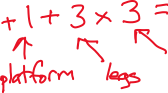 +1+3×3=
platform legs